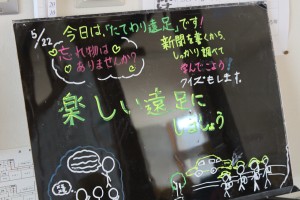 5/22 今日は、「たてわり遠足」です!
忘れ物は
ありませんか?
新聞を書くから、
しっかり調べて
学んでこよう!
クイズもします。
楽しい遠足に
しましょう